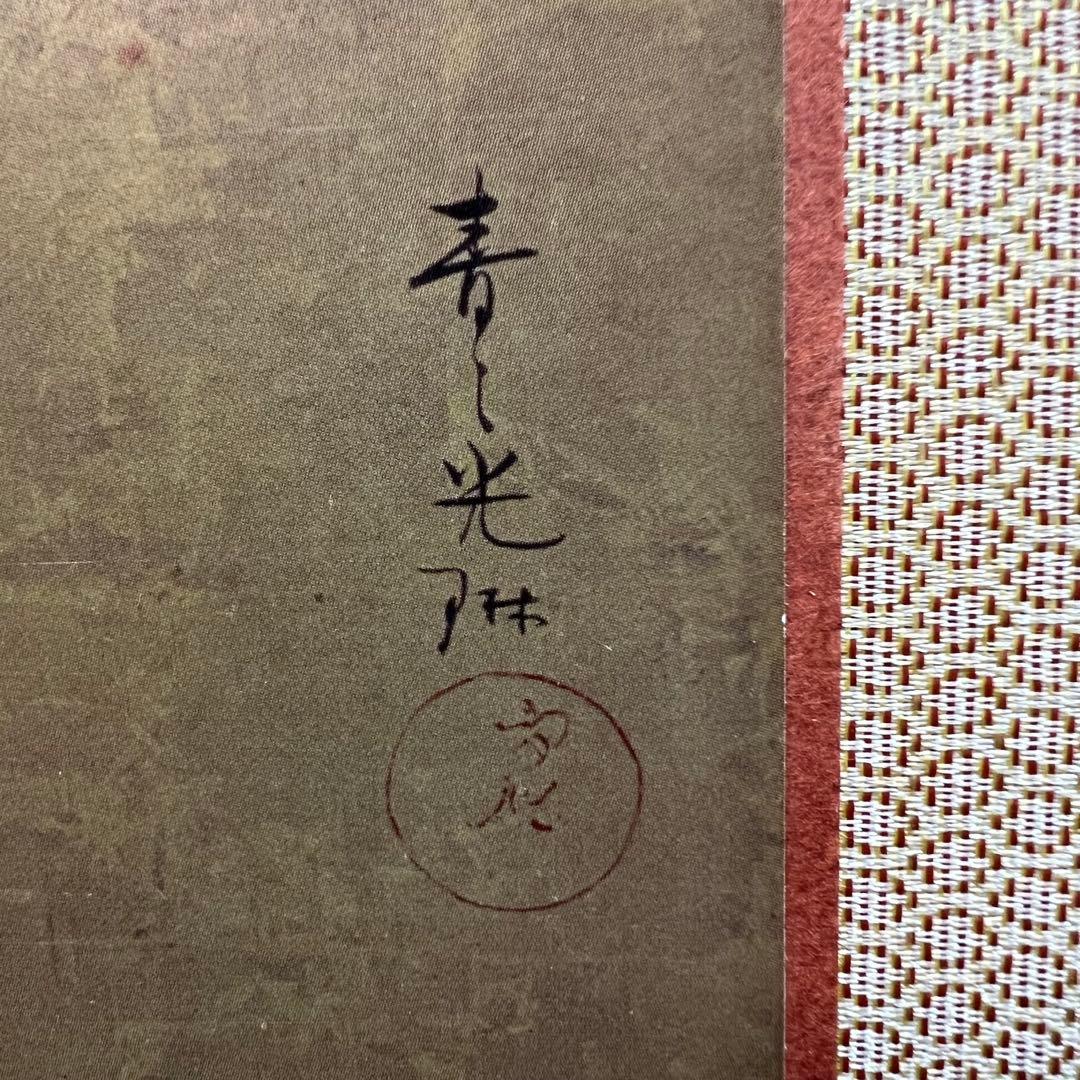 青々光琳
方祝